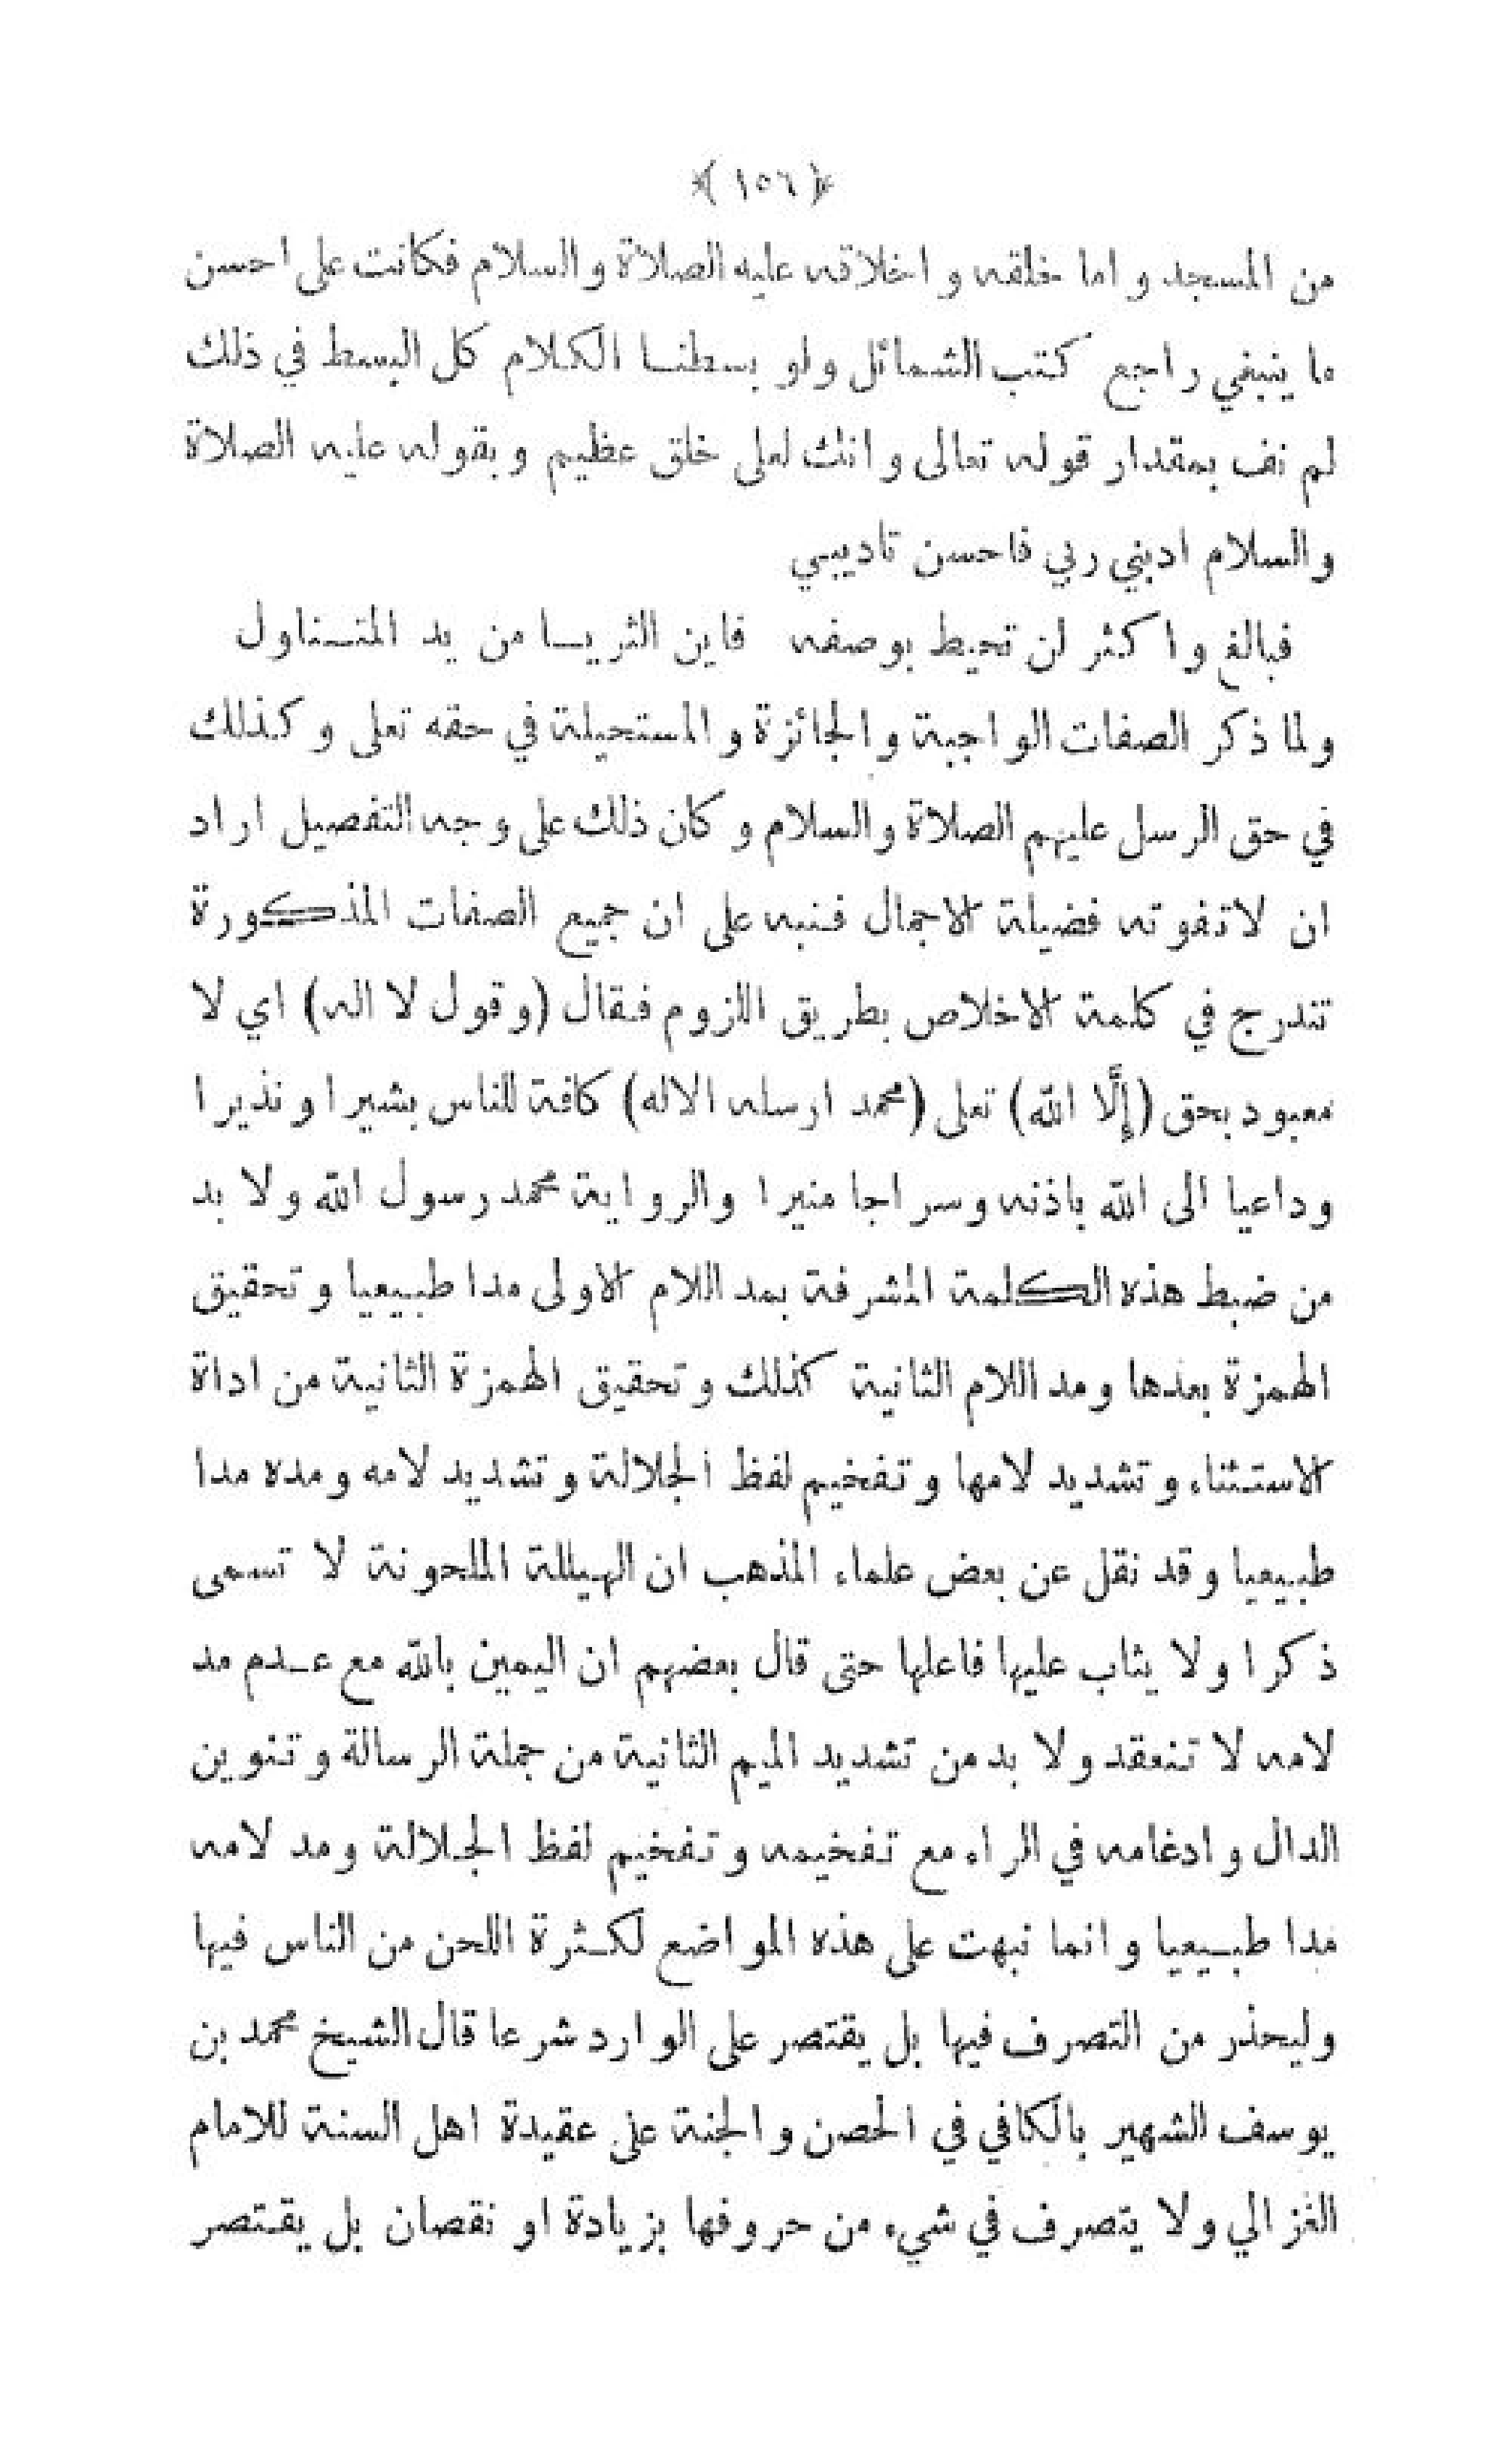 ﴿ ١٥٦ ﴾
من المسجد واما خلقه واخلاقه عليه الصلاة والسلام فكانت على احسن
ما ينبغي راجع كتب الشمائل ولو بسطنا الكلام كل البسط في ذلك
لم نف بمقدار قوله تعالى وانك لعلى خلق عظيم وبقوله عليه الصلاة
والسلام ادبني ربي فاحسن تاديبي
فبالغ واكثر لن تحيط بوصفه فاين الثريا من يد المتناول
ولما ذكر الصفات الواجبة والجائزة والمستحيلة في حقه تعلى وكذلك
في حق الرسل عليهم الصلاة والسلام وكان ذلك على وجه التفصيل اراد
ان لا تفوته فضيلة الاجمال فنبه على ان جميع الصفات المذكورة
تندرج في كلمة الاخلاص بطريق اللزوم فقال (وقول لا اله) اي لا
معبود بحق (إلَّا الله) تعلى (محمد ارسله الاله) كافة للناس بشيرا ونذيرا
وداعيا الى الله باذنه وسراجا منيرا والرواية محمد رسول الله ولا بد
من ضبط هذه الكلمة المشرفة بمد اللام الاولى مدا طبيعيا وتحقيق
الهمزة بعدها ومد اللام الثانية كذلك وتحقيق الهمزة الثانية من اداة
الاستثناء وتشديد لامها وتفخيم لفظ الجلالة وتشديد لامه ومده مدا
طبيعيا وقد نقل عن بعض علماء المذهب ان الهيللة الملحونة لا تسمى
ذكرا ولا يثاب عليها فاعلها حتى قال بعضهم ان اليمين بالله مع عدم مد
لامه لا تنعقد ولا بد من تشديد الميم الثانية من جملة الرسالة وتنوين
الدال وادغامه في الراء مع تفخيمه وتفخيم لفظ الجلالة ومد لامه
مدا طبيعيا وانما نبهت على هذه المواضع لكثرة اللحن من الناس فيها
وليحذر من التصرف فيها بل يقتصر على الوارد شرعا قال الشيخ محمد بن
يوسف الشهير بالكافي في الحصن والجنة على عقيدة اهل السنة للامام
الغزالي ولا يتصرف في شيء من حروفها بزيادة او نقصان بل يقتصر